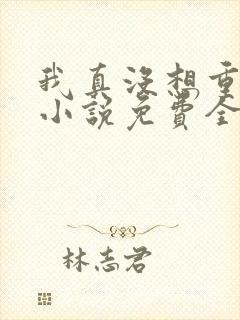 我真没想重
小说免费全
林志君